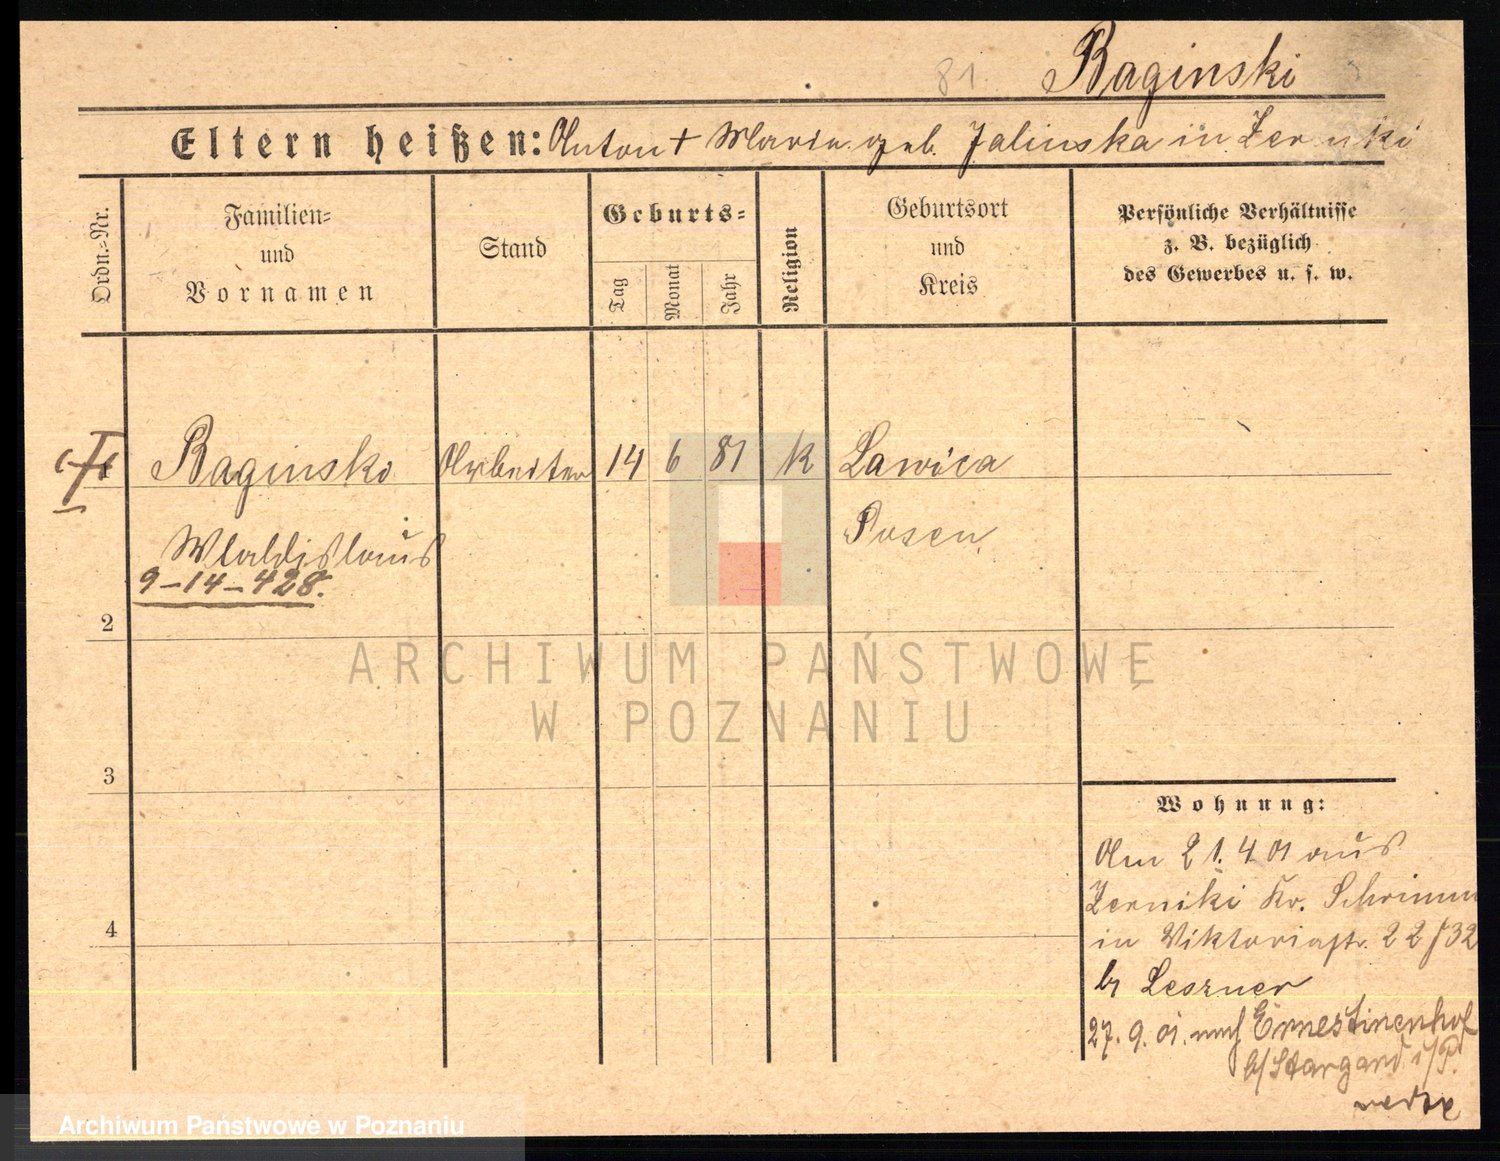 81. Baginski
Eltern heißen: Anton + Maria geb. Jalinska in Zerniki
Ordn.-Nr.
Familien-
und
Vornamen
Stand
Geburts-
Tag
Monat
Jahr
Religion
Geburtsort
und
Kreis
Persönliche Verhältnisse
z. B. bezüglich
des Gewerbes u. s. w.
Baginski Arbeiter 14 6 81 K Lawica
Wladislaus Posen
9-14-428.
2
3
4
Wohnung:
Am 21.4 01 aus
Zerniki Kr. Schrimm
in Viktoriastr. 22/32
b/ Leszner
27. 9. 01. nach Ernestinenhof
b/Stargard i/P.
ARCHIWUM PAŃSTWOWE
W POZNANIU
Archiwum Państwowe w Poznaniu